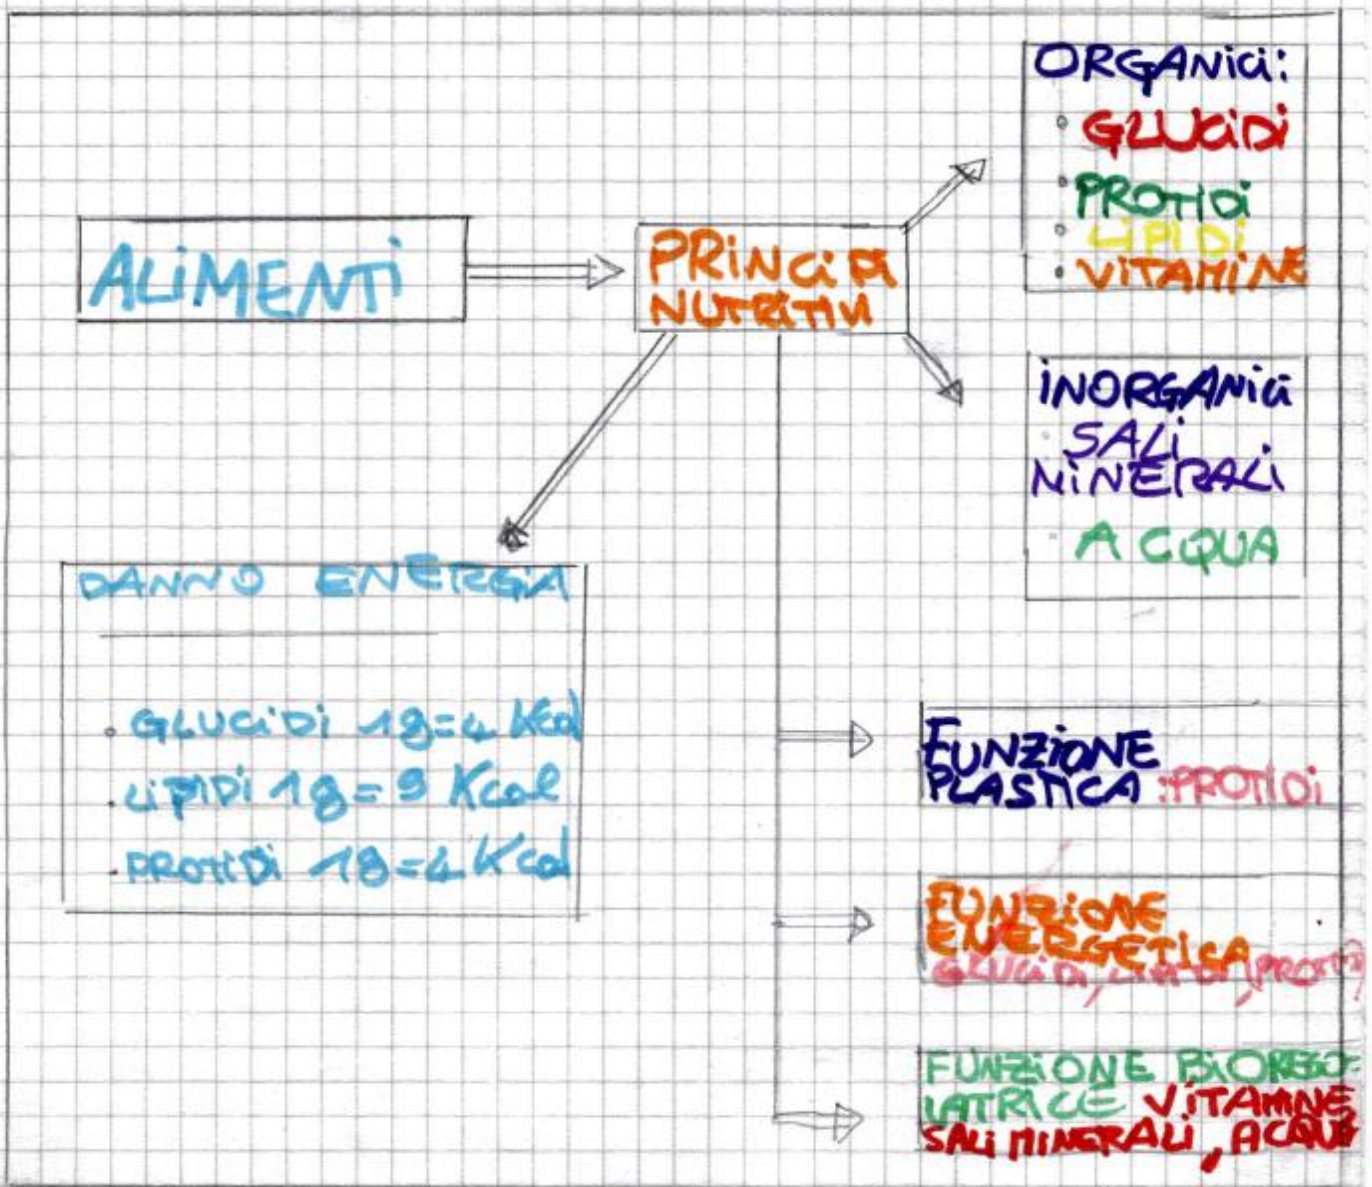 ALIMENTI
PRINCIPI
NUTRITIVI
ORGANICI:
• GLUCIDI
• PROTIDI
• LIPIDI
• VITAMINE
INORGANICI
• SALI
MINERALI
• ACQUA
DANNO ENERGIA
• GLUCIDI 1g=4 Kcal
• LIPIDI 1g=9 Kcal
• PROTIDI 1g=4 Kcal
FUNZIONE
PLASTICA :PROTIDI
FUNZIONE
ENERGETICA
GLUCIDI, LIPIDI, (PROTIDI)
FUNZIONE BIOREGO=
LATRICE VITAMINE
SALI MINERALI, ACQUA